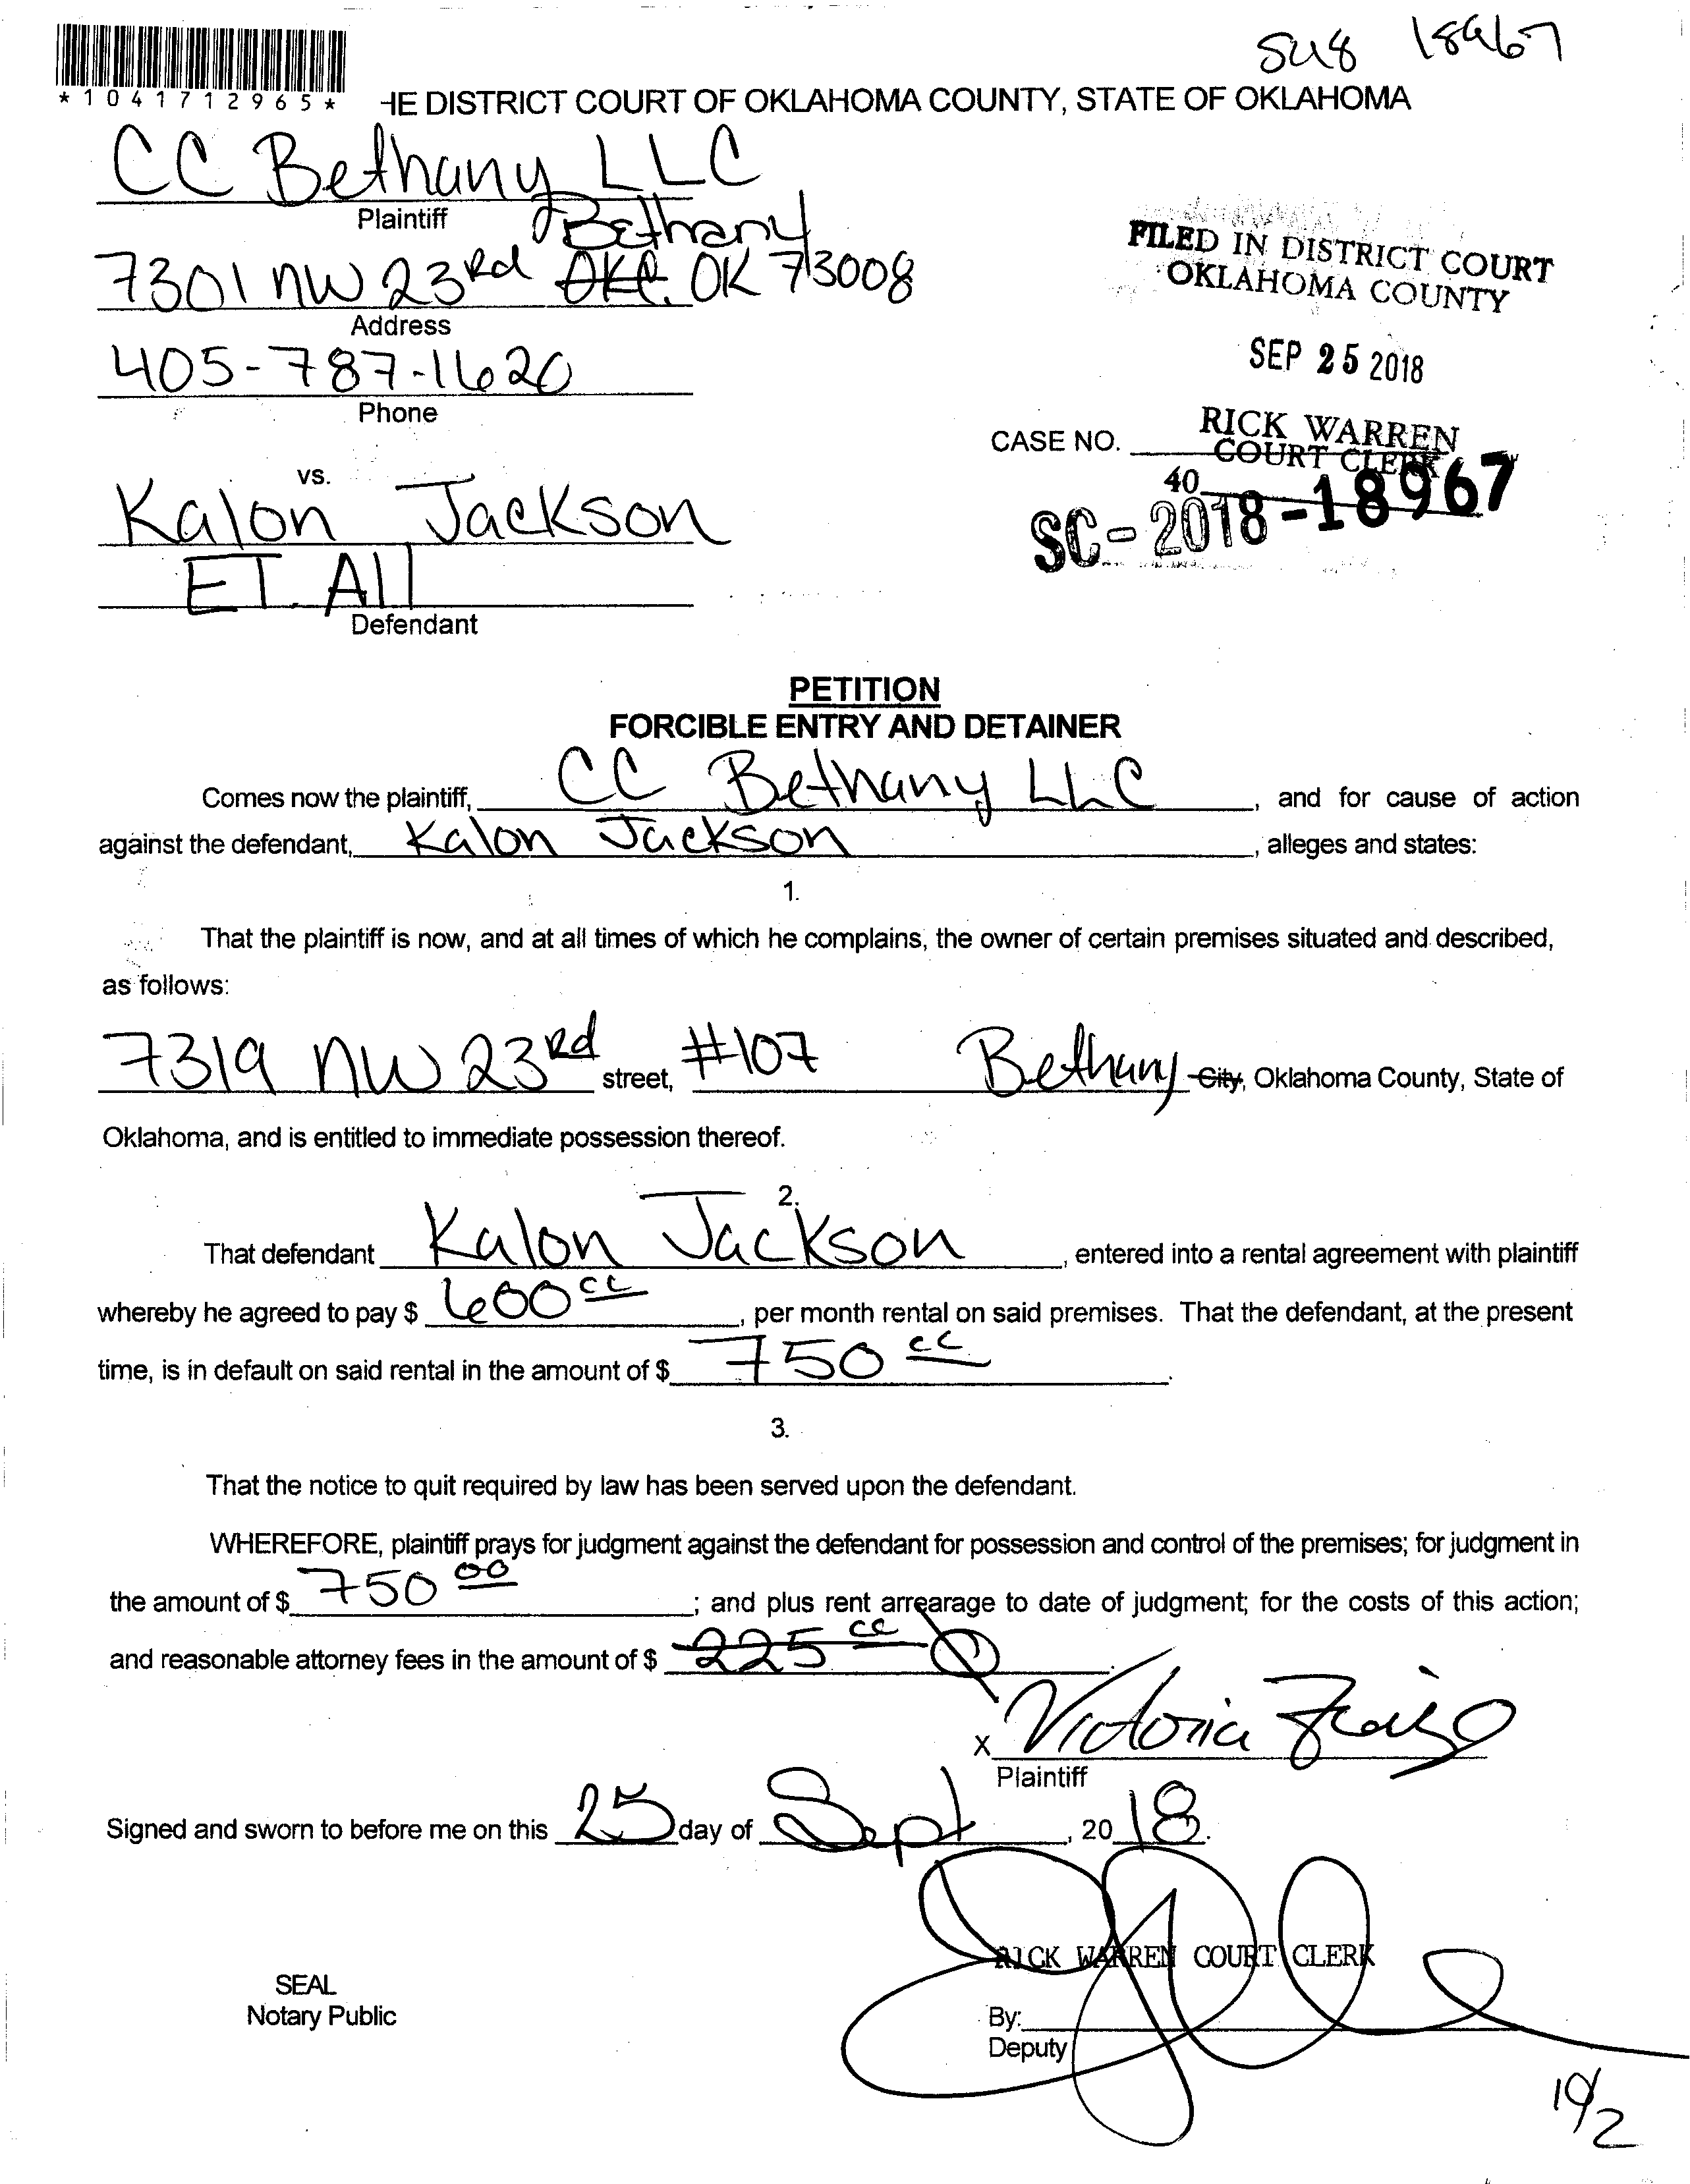 SU8 18967
*1041712965*
HE DISTRICT COURT OF OKLAHOMA COUNTY, STATE OF OKLAHOMA
CC Bethany LLC
Plaintiff
Bethany
7301 NW 23rd OKC. OK 73008
Address
405-787-1620
Phone
FILED IN DISTRICT COURT
OKLAHOMA COUNTY
SEP 25 2018
RICK WARREN
COURT CLERK
CASE NO.
40
SC-2018-18967
vs.
Kalon Jackson
ET. All
Defendant
PETITION
FORCIBLE ENTRY AND DETAINER
Comes now the plaintiff, CC Bethany LLC, and for cause of action
against the defendant, Kalon Jackson, alleges and states:
1.
That the plaintiff is now, and at all times of which he complains, the owner of certain premises situated and described,
as follows:
7319 NW 23rd street, #107 Bethany City, Oklahoma County, State of
Oklahoma, and is entitled to immediate possession thereof.
2.
That defendant Kalon Jackson, entered into a rental agreement with plaintiff
whereby he agreed to pay $ 600 00, per month rental on said premises. That the defendant, at the present
time, is in default on said rental in the amount of $ 750 00.
3.
That the notice to quit required by law has been served upon the defendant.
WHEREFORE, plaintiff prays for judgment against the defendant for possession and control of the premises; for judgment in
the amount of $ 750 00; and plus rent arrearage to date of judgment; for the costs of this action;
and reasonable attorney fees in the amount of $ 225 00 0.
x Victoria
Plaintiff
Signed and sworn to before me on this 25 day of Sept, 2018.
RICK WARREN COURT CLERK
SEAL
Notary Public
By:
Deputy
10/2